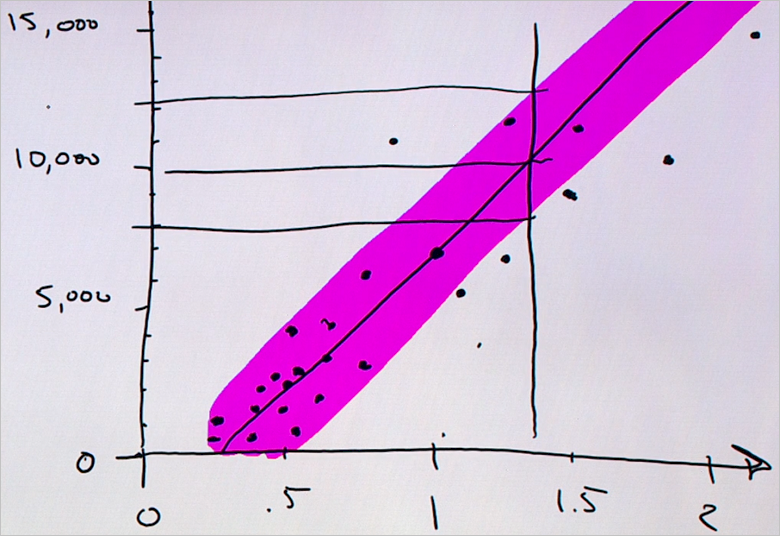 15,000
10,000
5,000
0
0 .5 1 1.5 2